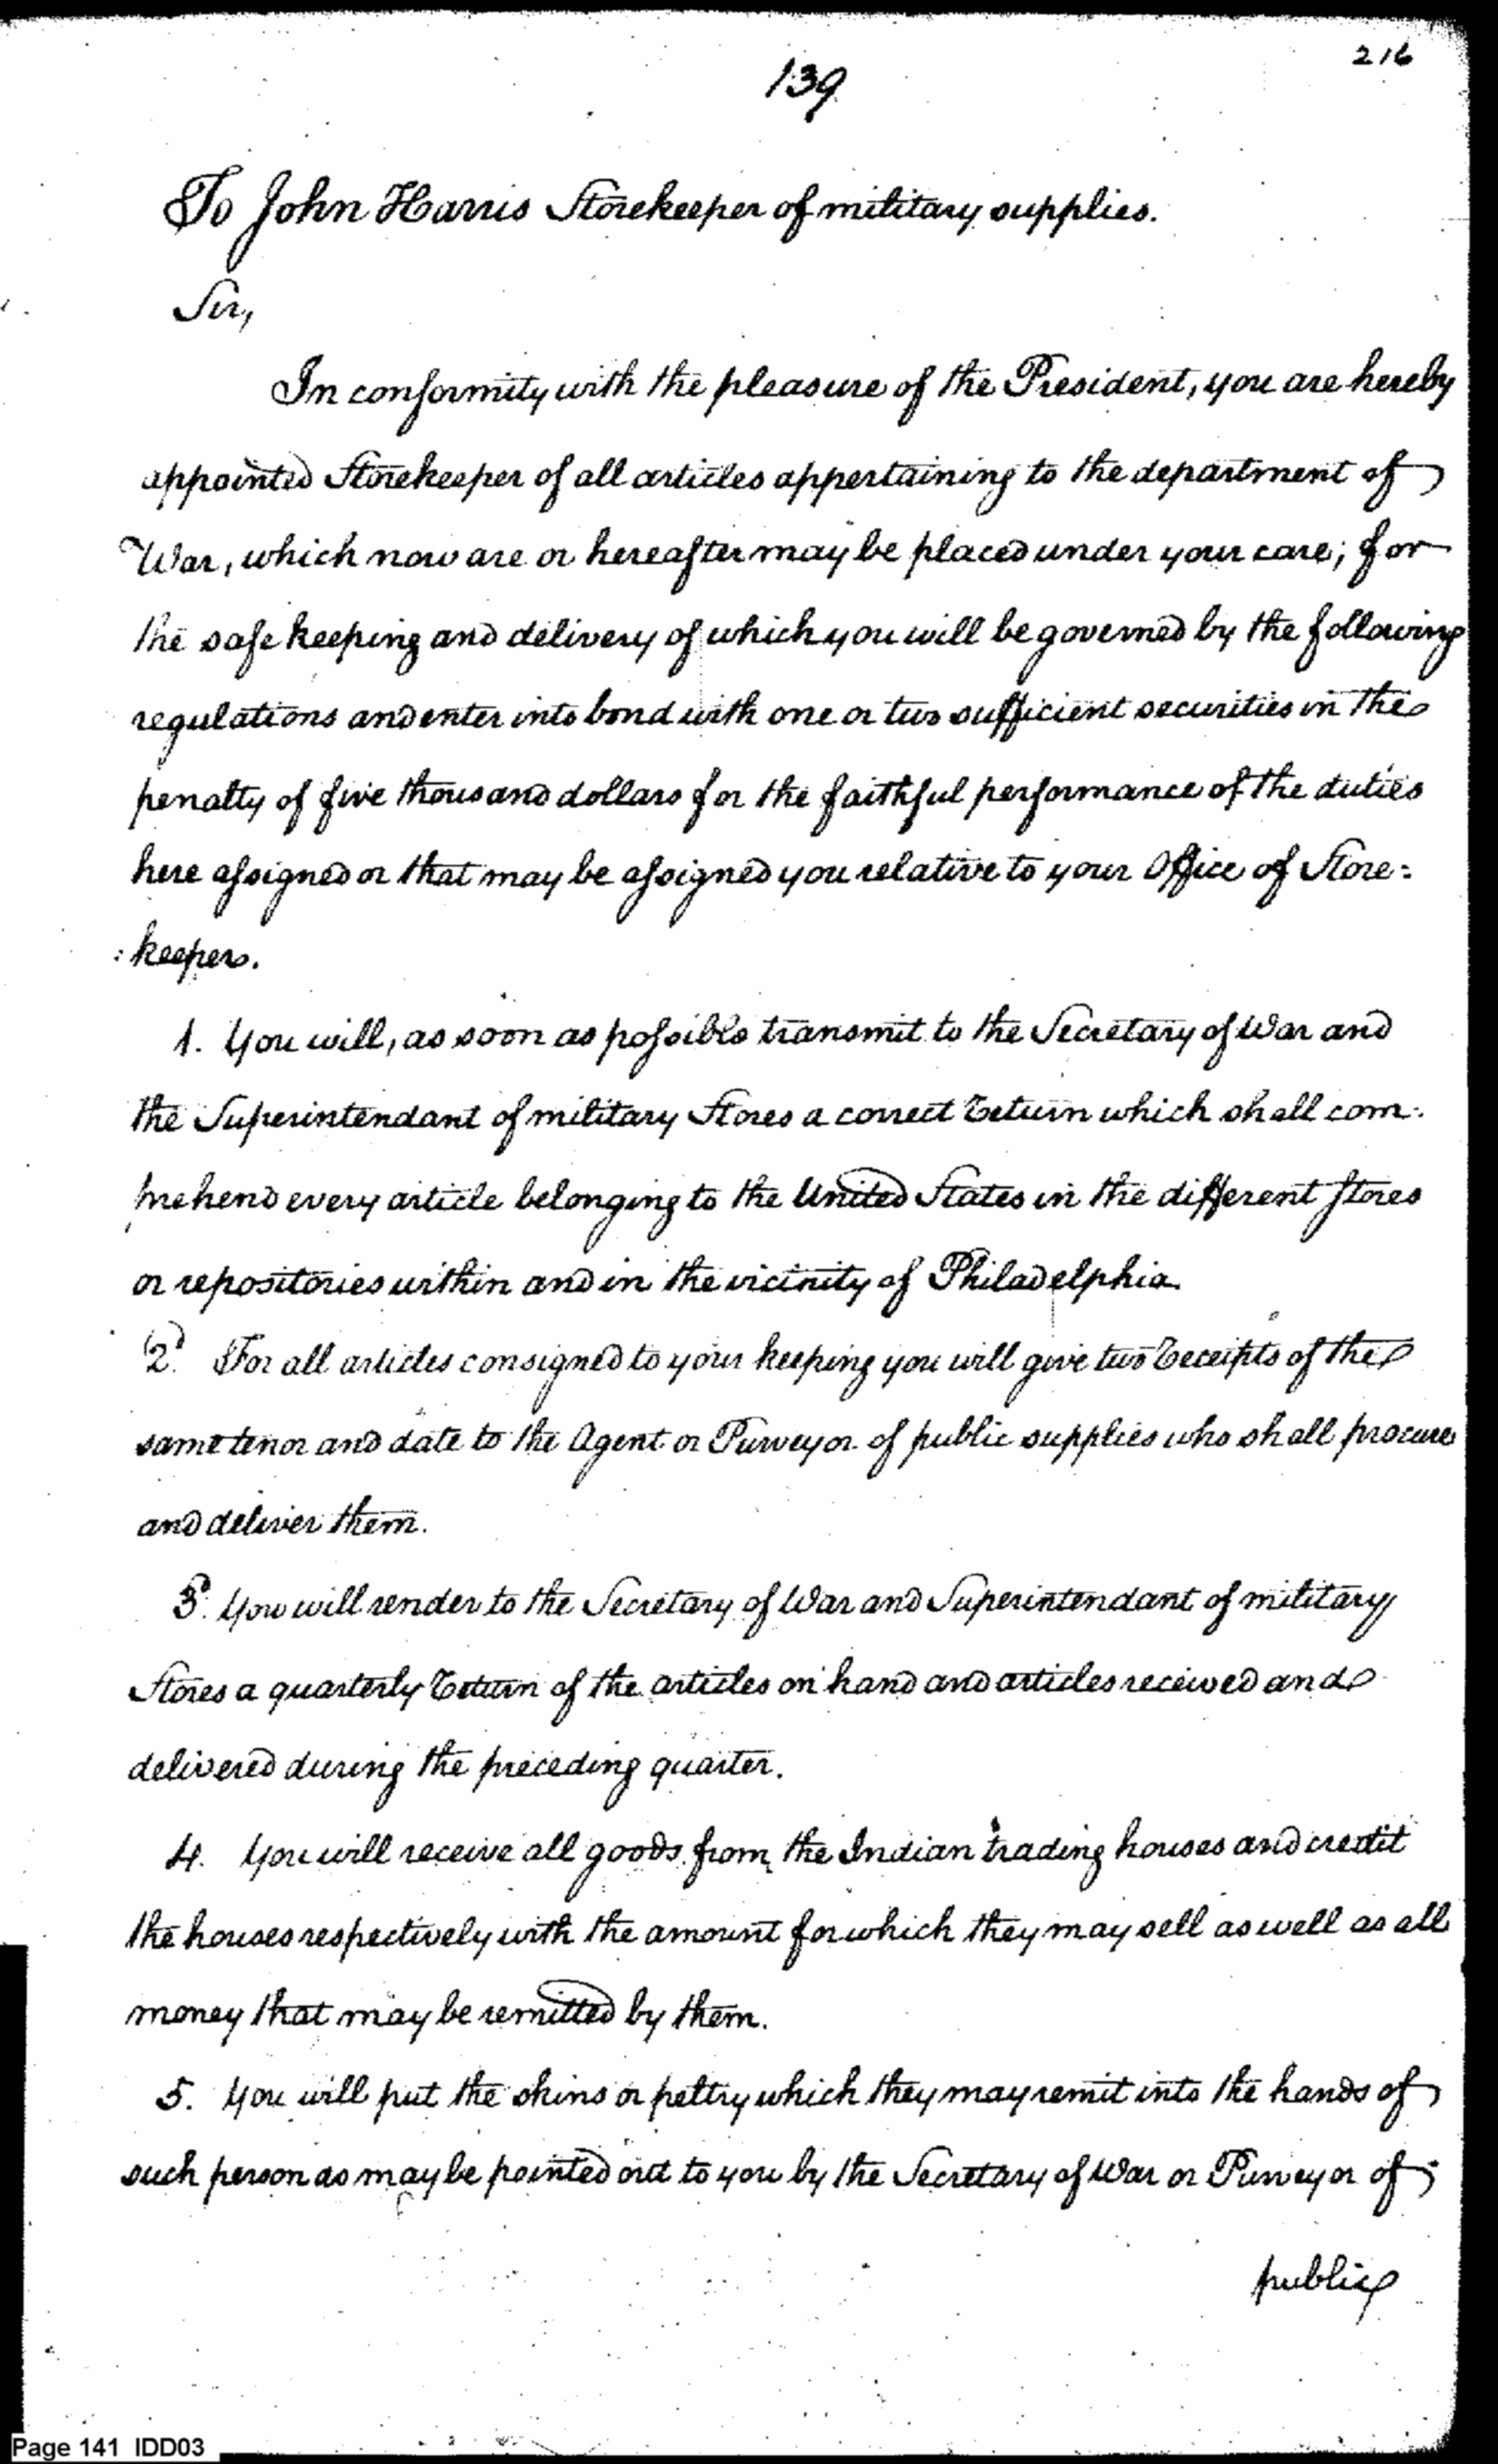 216
139
To John Harris Storekeeper of military supplies.
Sir,
In conformity with the pleasure of the President, you are hereby
appointed Storekeeper of all articles appertaining to the department of
War, which now are or hereafter may be placed under your care; for
the safe keeping and delivery of which you will be governed by the following
regulations and enter into bond with one or two sufficient securities in the
penalty of five thousand dollars for the faithful performance of the duties
here assigned or that may be assigned you relative to your Office of Store=
=keeper.
1. You will, as soon as possible transmit to the Secretary of War and
the Superintendant of military Stores a correct Return which shall com=
prehend every article belonging to the United States in the different stores
or repositories within and in the vicinity of Philadelphia.
2d. For all articles consigned to your keeping you will give two Receipts of the
same tenor and date to the Agent or Purveyor of public supplies who shall procure
and deliver them.
3d. You will render to the Secretary of War and Superintendant of military
Stores a quarterly Return of the articles on hand and articles received and
delivered during the preceding quarter.
4. You will receive all goods from the Indian trading houses and credit
the houses respectively with the amount for which they may sell as well as all
money that may be remitted by them.
5. You will put the skins or peltry which they may remit into the hands of
such person as may be pointed out to you by the Secretary of War or Purveyor of
public
Page 141 IDD03